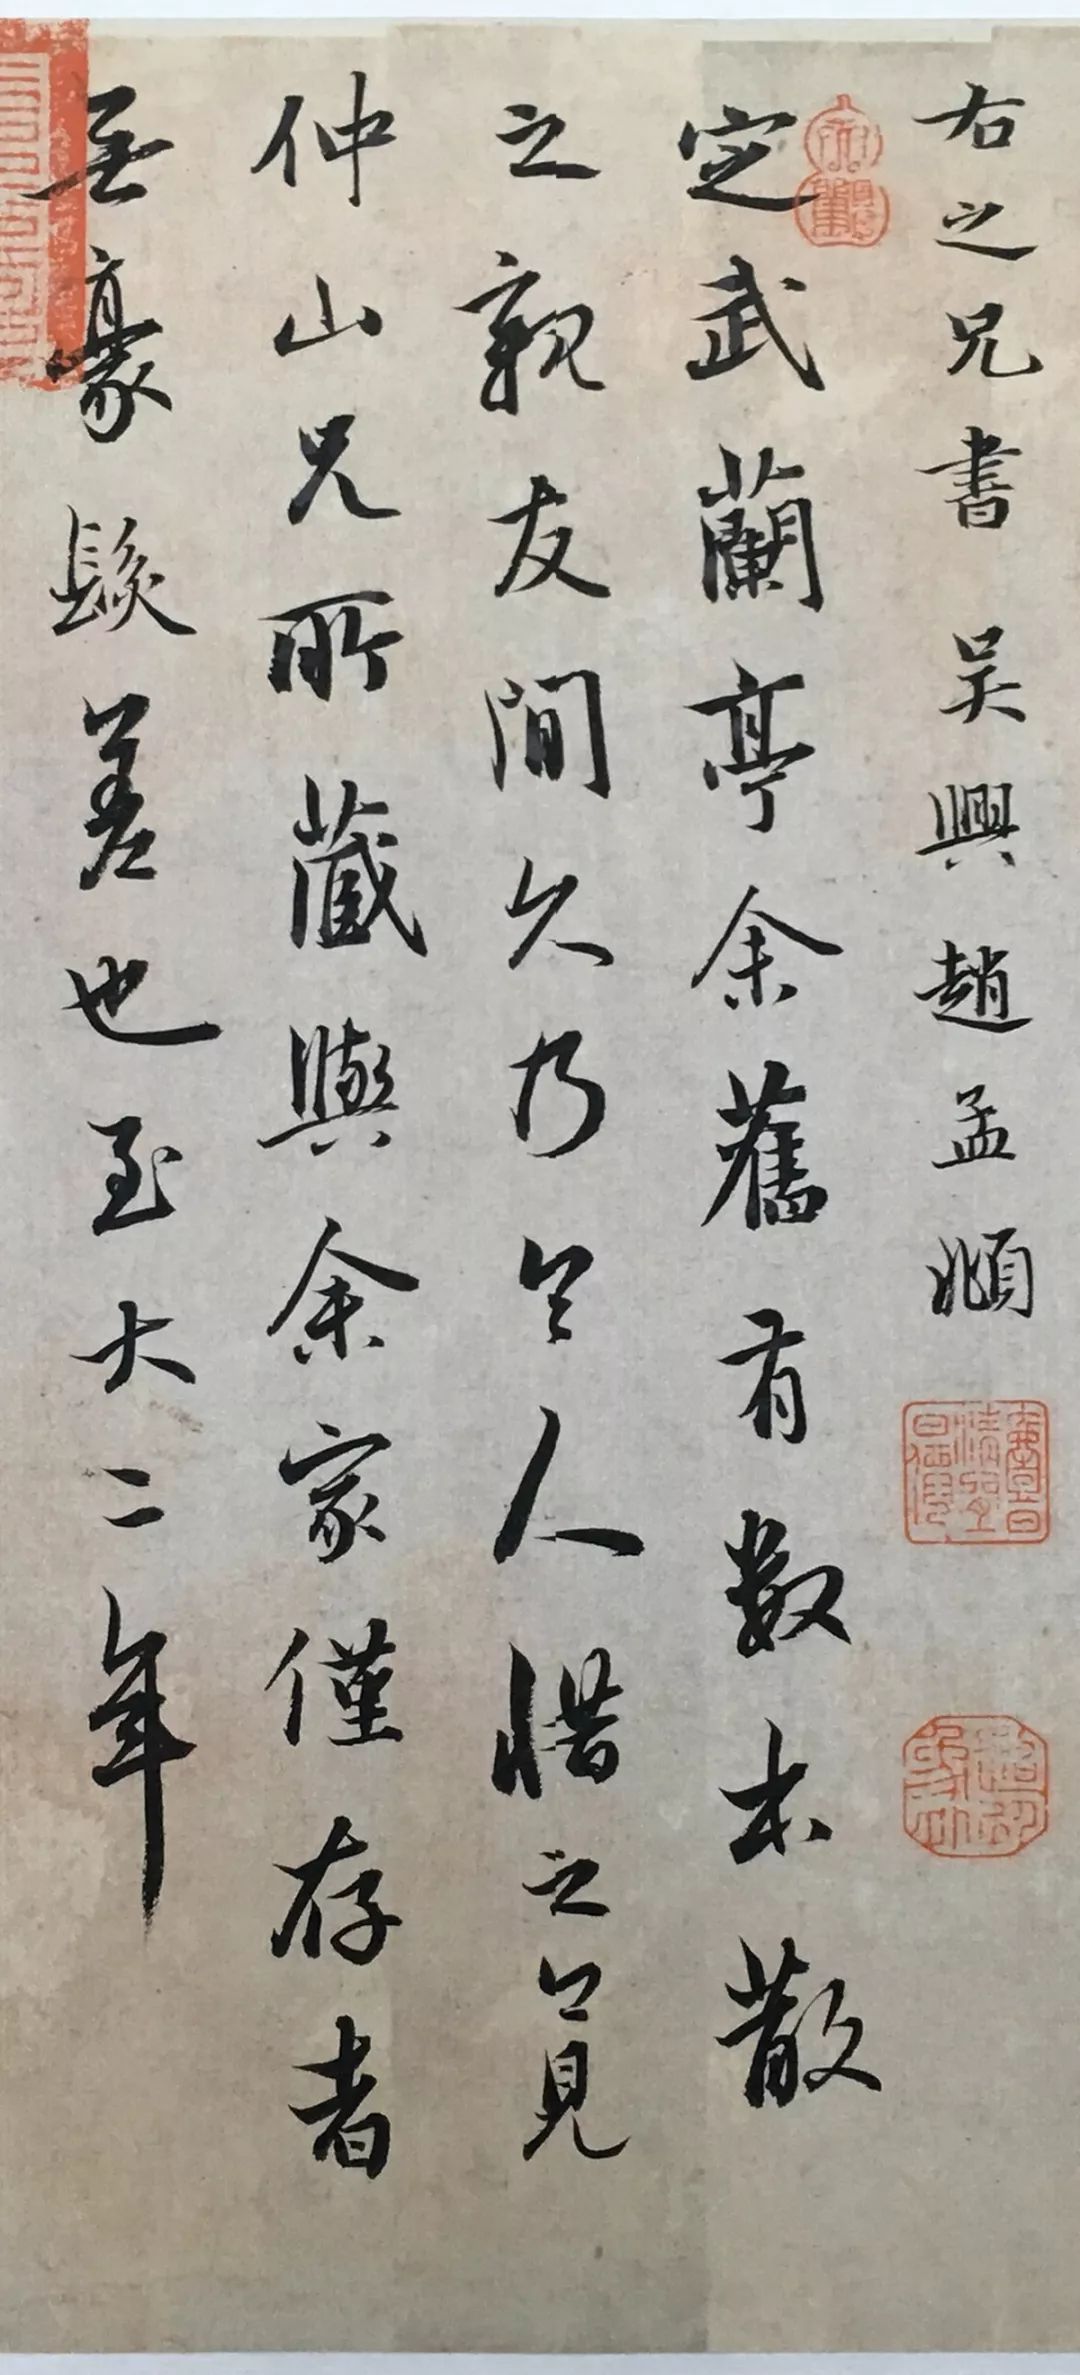 右之兄書 吳興趙孟頫
定武蘭亭余舊有數本散
之親友間久乃令人惜之今見
仲山兄所藏與余家僅存者
無豪髮差也至大二年